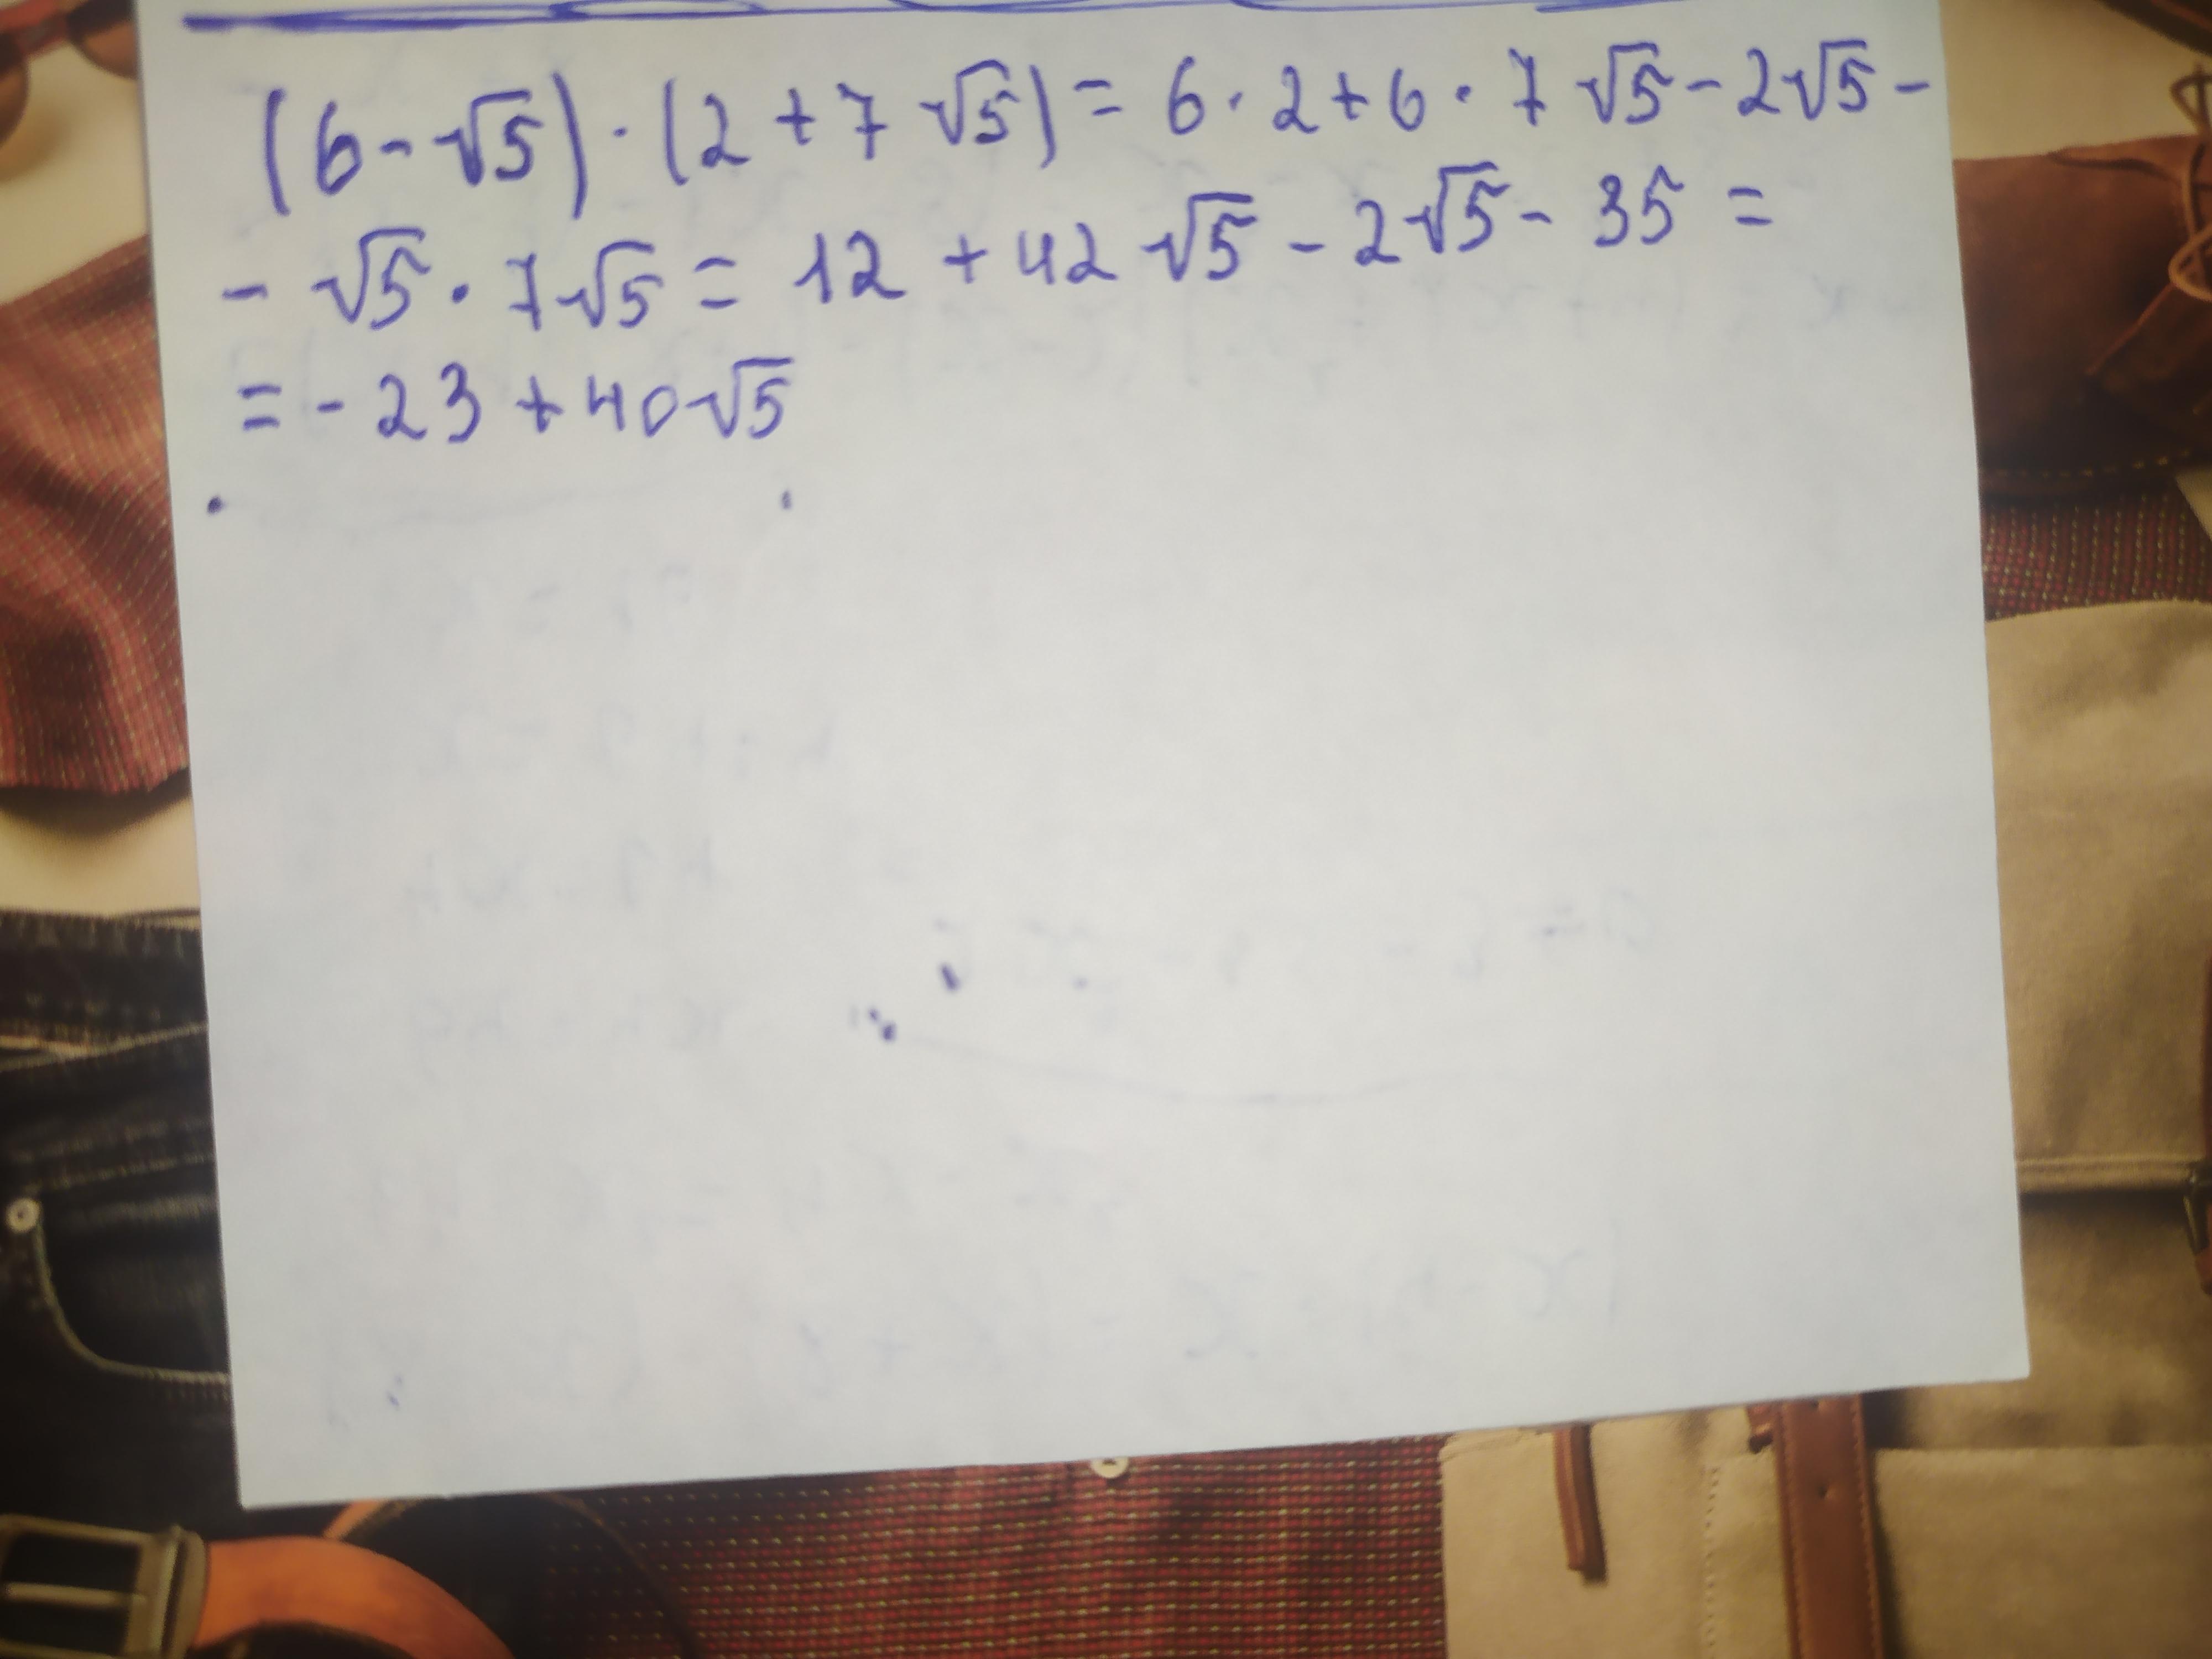 (6-√5)·(2+7√5)=6·2+6·7√5-2√5-
-√5·7√5=12+42√5-2√5-35=
=-23+40√5